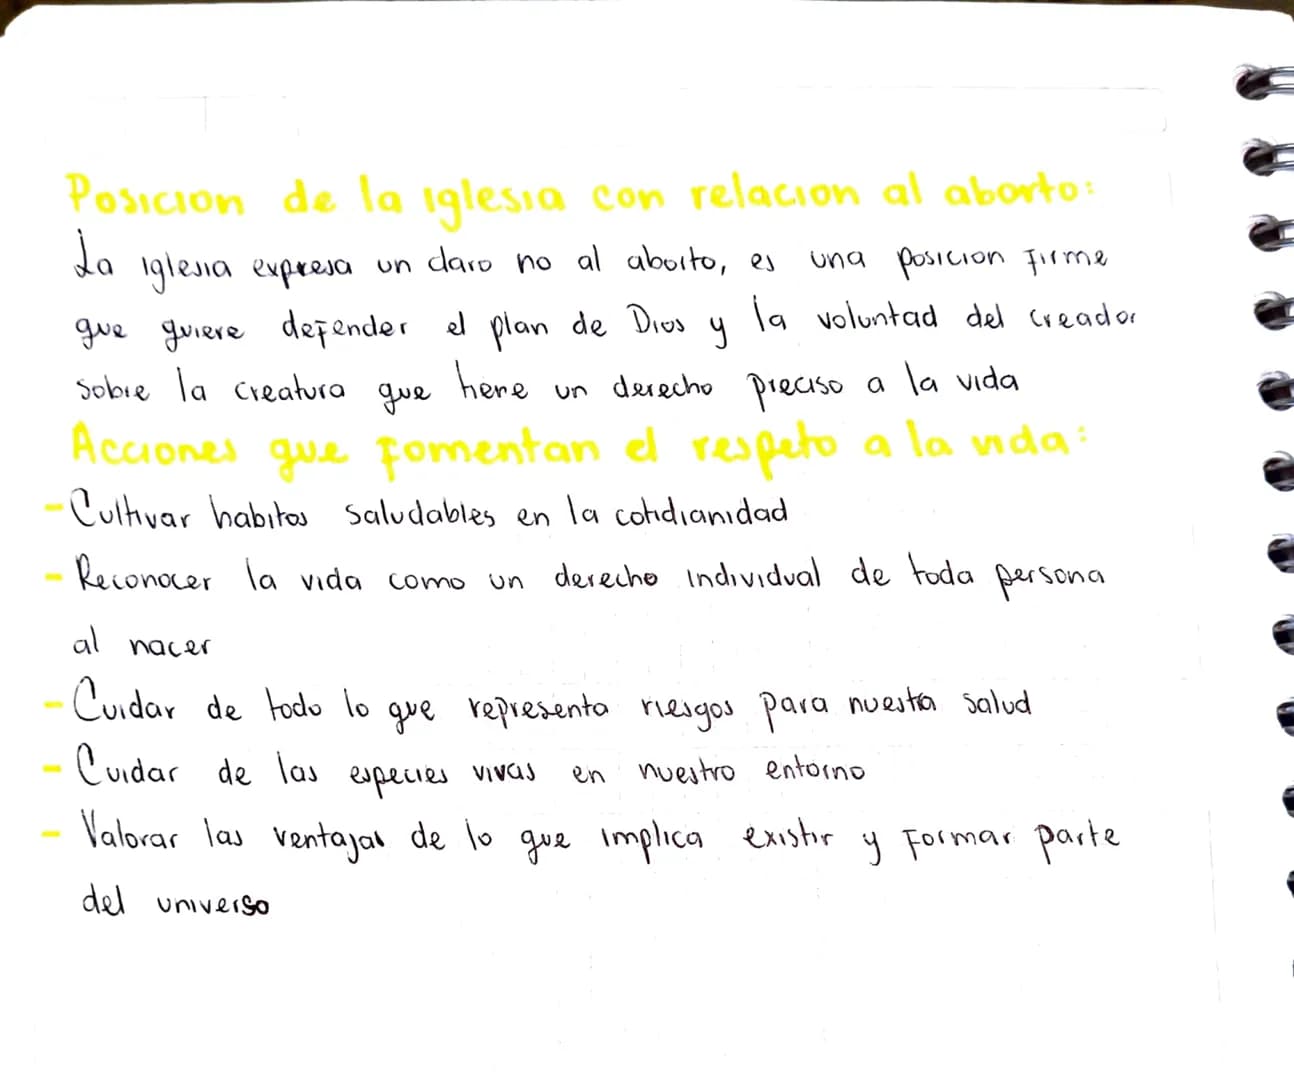 Posicion de la iglesia con relacion al aborto:
La iglesia expresa un claro no al aborto, es una posicion firme
que quiere defender el plan de Dios y la voluntad del creador
sobre la creatura que tiene un derecho preciso a la vida
Acciones que fomentan el respeto a la vida:
- Cultivar habitos saludables en la cotidianidad
- Reconocer la vida como un derecho individual de toda persona
al nacer
- Cuidar de todo lo que representa riesgos para nuestra salud
- Cuidar de las especies vivas en nuestro entorno
- Valorar las ventajas de lo que implica existir y formar parte
del universo